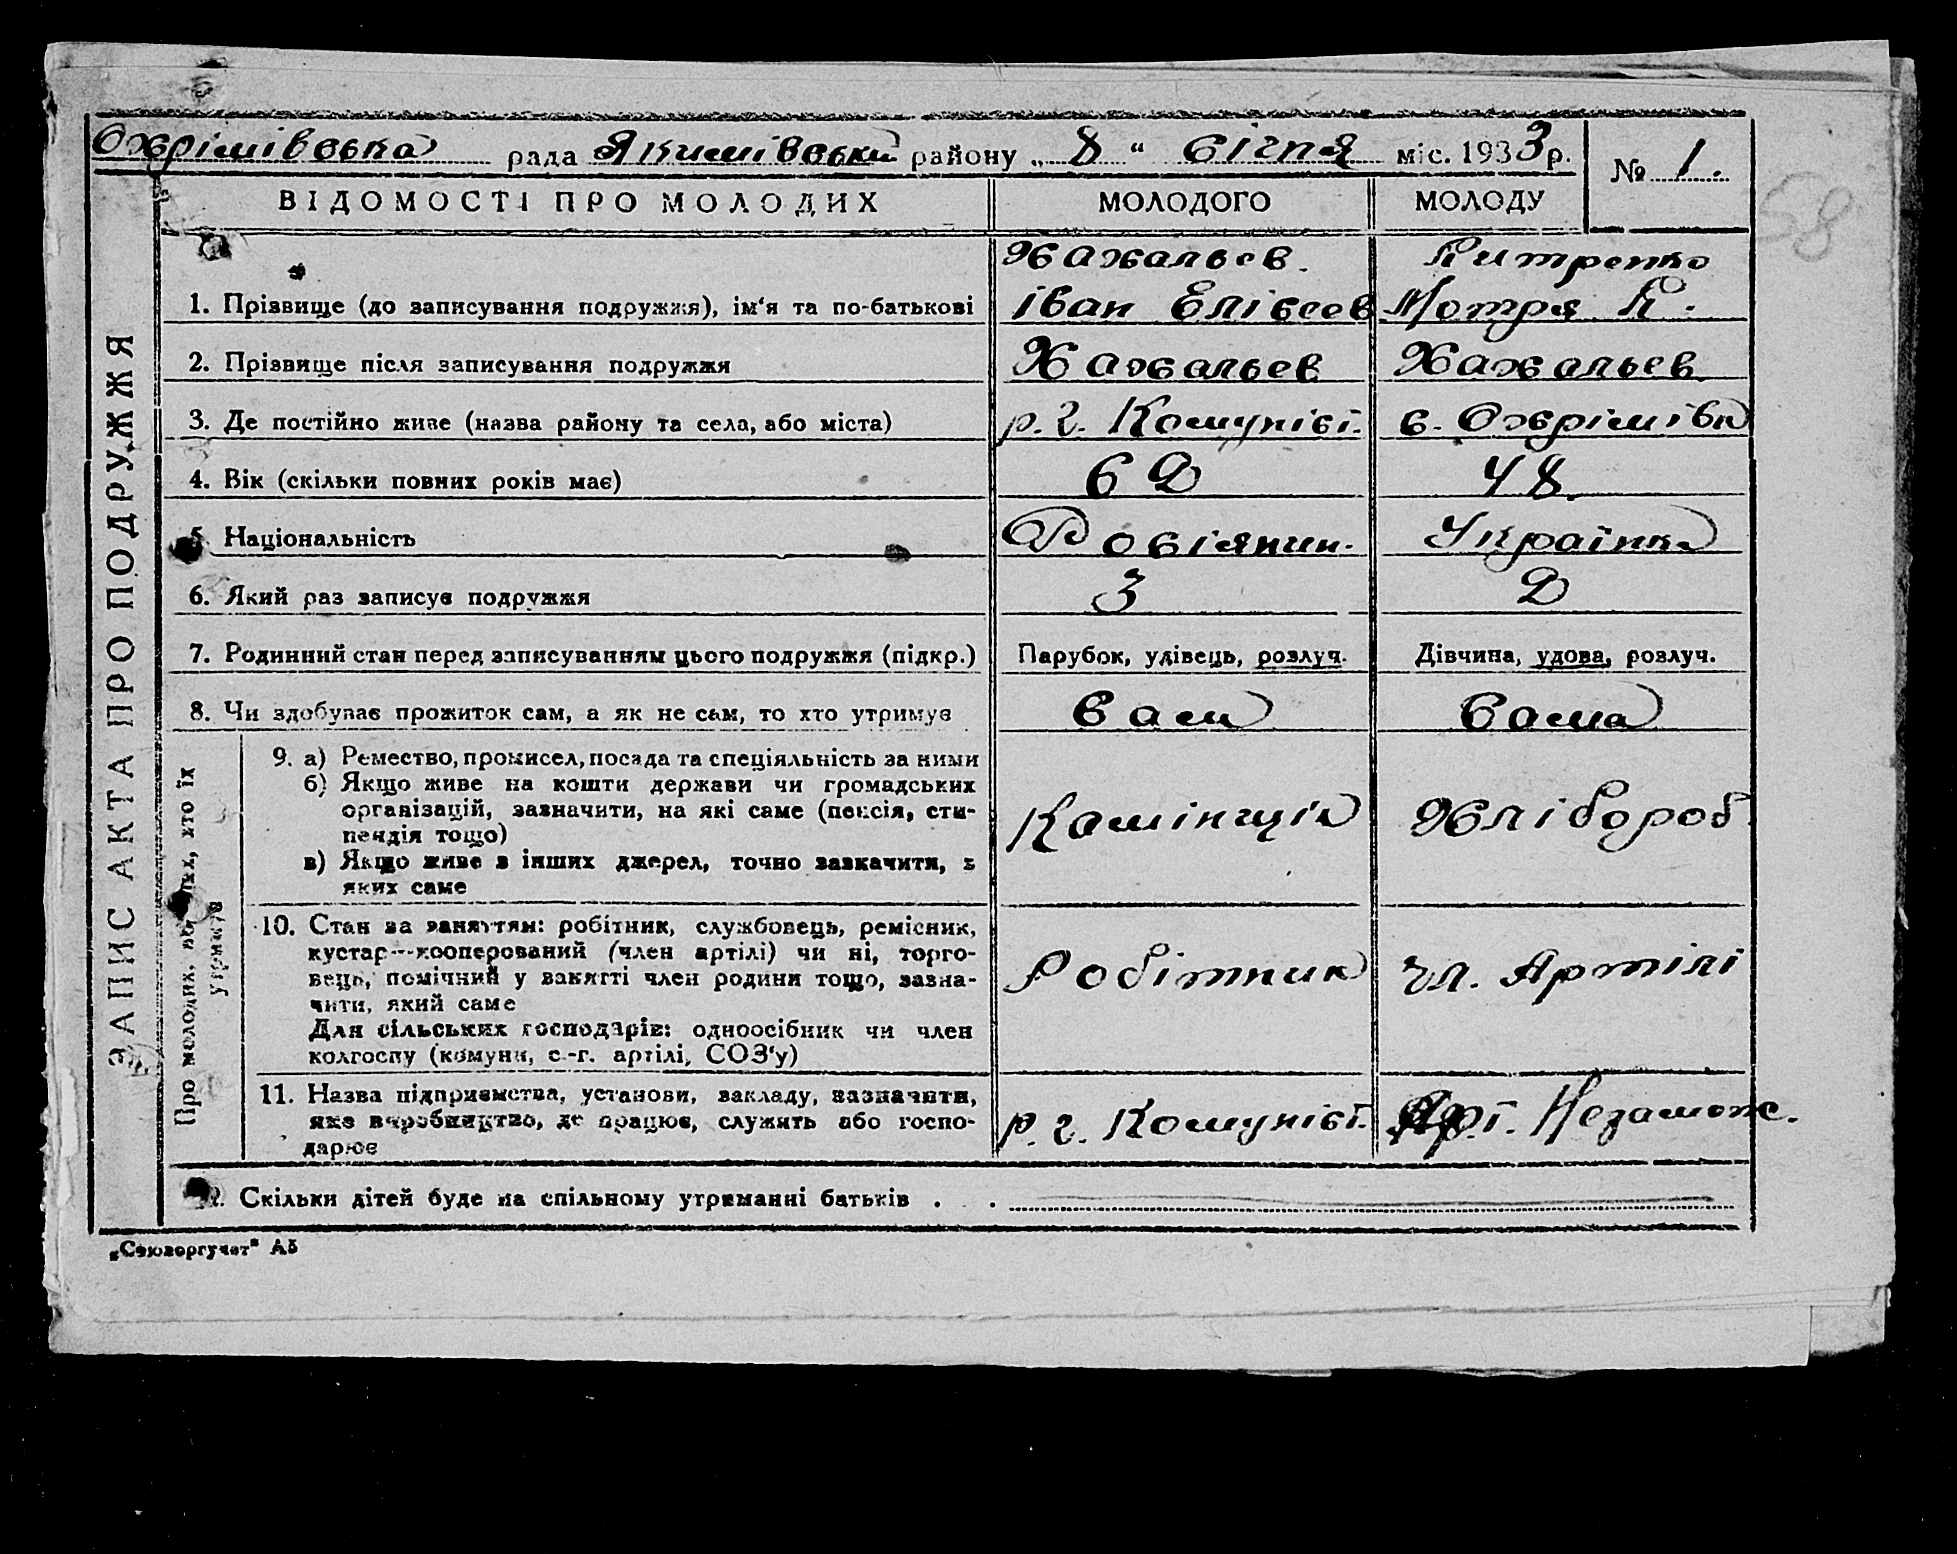 Охрімівська рада Якимівськи району „ 8 “ січня міс. 1933 р.
№ 1.
58
ВІДОМОСТІ ПРО МОЛОДИХ МОЛОДОГО МОЛОДУ
ЗАПИС АКТА ПРО ПОДРУЖЖЯ
Хахальєв.
1. Прізвище (до записування подружжя), ім‘я та по-батькові іван Елівсев Мотря
2. Прізвище після записування подружжя Хахальев Хахальєв
3. Де постійно живе (назва району та села, або міста) р. г. Комуніст. с. Охрімівка
4. Вік (скільки повних років має) 62 48.
5. Національність Росіянин. Українка
6. Який раз записує подружжя 3 2
7. Родинний стан перед записуванням цього подружжя (підкр.) Парубок, удівець, розлуч. Дівчина, удова, розлуч.
8. Чи здобуває прожиток сам, а як не сам, то хто утримує сам сама
Про молодих, хто їх
утримує
9. а) Ремество, промисел, посада та спеціяльність за ними
б) Якщо живе на кошти держави чи громадських
організацій, зазначити, на які саме (пенсія, сти-
пендія тощо) Камінщік Хлібороб
в) Якщо живе з інших джерел, точно зазначити, з
яких саме
10. Стан за заняттям: робітник, службовець, ремісник,
кустар—кооперований (член артілі) чи ні, торго-
вець, помічний у занятті член родини тощо, зазна- Робітник чл. Артілі
чити, який саме
Для сільських господарів: одноосібник чи член
колгоспу (комуни, с.-г. артілі, СОЗ‘у)
11. Назва підприємства, установи, закладу, зазначити,
яке виробництво, де працює, служить або госпо- р. г. Комуніст. Арт. Незамож.
дарює
12. Скільки дітей буде на спільному утриманні батьків . .
„Союзоргучет“ А5